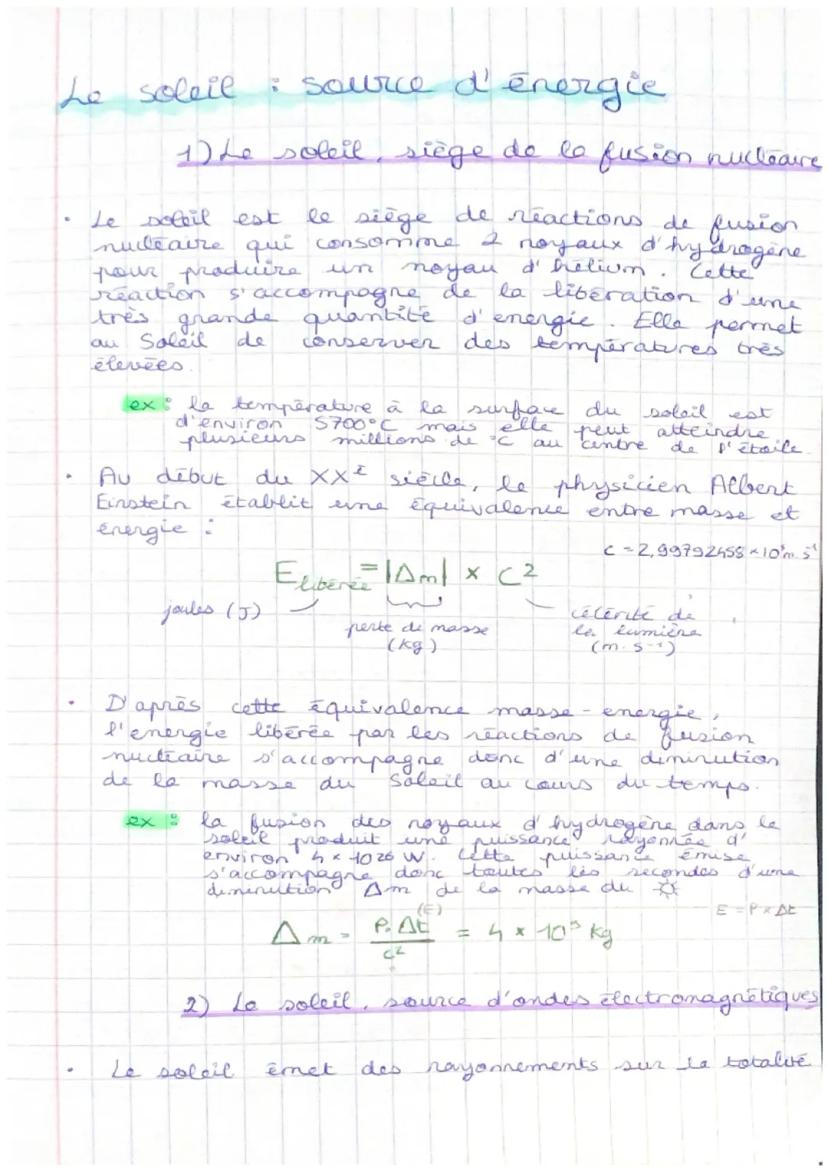 Le soleil : source d'énergie
1) Le soleil, siège de la fusion nucléaire
• Le soleil est le siège de réactions de fusion
nucléaire qui consomme 2 noyaux d'hydrogène
pour produire un noyau d'hélium. Cette
réaction s'accompagne de la libération d'une
très grande quantité d'énergie. Elle permet
au Soleil de conserver des températures très
élevées.
ex : la température à la surface du soleil est
d'environ 5700°C mais elle peut atteindre
plusieurs millions de °C au centre de l'étoile.
• Au début du XXe siècle, le physicien Albert
Einstein établit une équivalence entre masse et
énergie :
c = 2,99792458 × 10⁸ m.s⁻¹
E libérée = |Δm| × c²
joules (J)
perte de masse
(kg)
célérité de
la lumière
(m.s⁻¹)
• D'après cette équivalence masse-énergie,
l'énergie libérée par les réactions de fusion
nucléaire s'accompagne donc d'une diminution
de la masse du Soleil au cours du temps.
ex : la fusion des noyaux d'hydrogène dans le
soleil produit une puissance rayonnée d'
environ 4 × 1026 W. Cette puissance émise
s'accompagne donc toutes les secondes d'une
diminution Δm de la masse du ☼
E = P × Δt
Δm = P.Δt (E) / c² = 4 × 10⁹ kg
2) Le soleil, source d'ondes électromagnétiques
• Le soleil émet des rayonnements sur la totalité